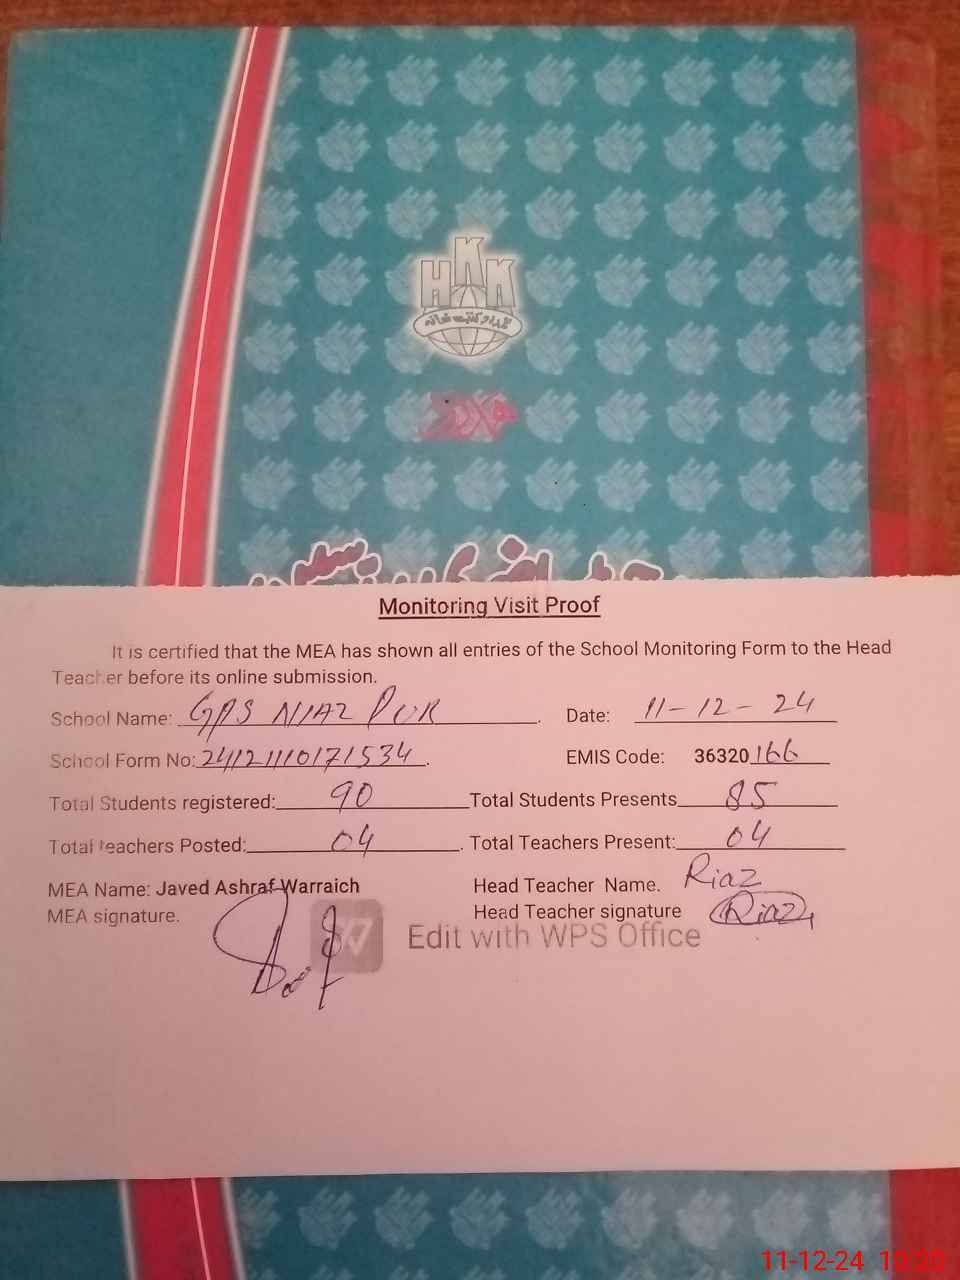 HKK
Monitoring Visit Proof
It is certified that the MEA has shown all entries of the School Monitoring Form to the Head
Teacher before its online submission.
School Name: GPS NIAZ PUR. Date: 11-12-24
School Form No: 24121110171534. EMIS Code: 36320166
Total Students registered: 90 Total Students Presents 85
Total teachers Posted: 04. Total Teachers Present: 04
MEA Name: Javed Ashraf Warraich Head Teacher Name. Riaz
MEA signature. Head Teacher signature Riaz
Edit with WPS Office
11-12-24 10:20